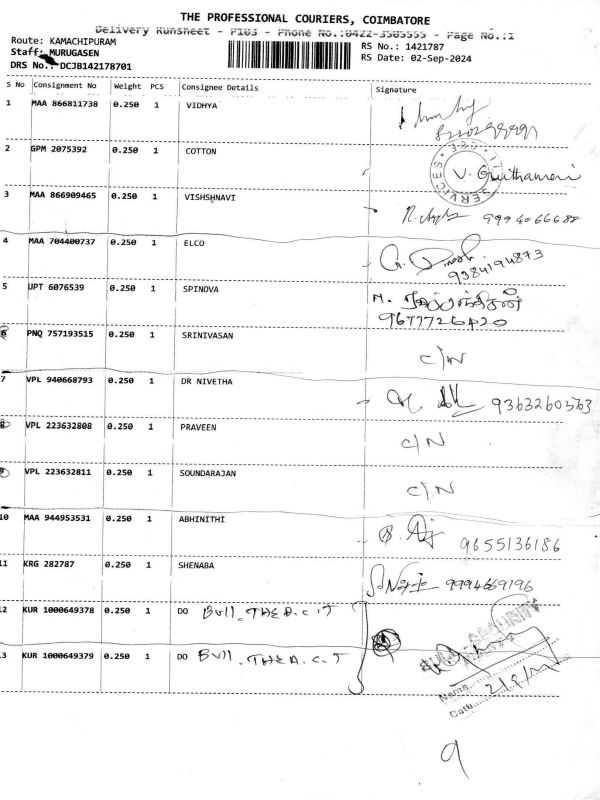 THE PROFESSIONAL COURIERS, COIMBATORE
Delivery Runsheet - P103 - Phone No.:0422-3505555 - Page No.:1
Route: KAMACHIPURAM
Staff: MURUGASEN
DRS No.: DCJB142178701
RS No.: 1421787
RS Date: 02-Sep-2024
S No Consignment No Weight PCS Consignee Details Signature
1 MAA 866811738 0.250 1 VIDHYA
2 GPM 2075392 0.250 1 COTTON
SERVICES
3 MAA 866909465 0.250 1 VISHSHNAVI 9994066688
4 MAA 704400737 0.250 1 ELCO G. Dinesh
9384194873
5 UPT 6076539 0.250 1 SPINOVA
9677726420
6 PNQ 757193515 0.250 1 SRINIVASAN C/N
7 VPL 940668793 0.250 1 DR NIVETHA 9363260563
8 VPL 223632808 0.250 1 PRAVEEN C/N
9 VPL 223632811 0.250 1 SOUNDARAJAN C/N
10 MAA 944953531 0.250 1 ABHINITHI 9655136186
11 KRG 282787 0.250 1 SHENABA 9994669196
12 KUR 1000649378 0.250 1 DO Bull. THE A.C.T
13 KUR 1000649379 0.250 1 DO Bull. THE A.C.T
SECURITY
Name
Date
9